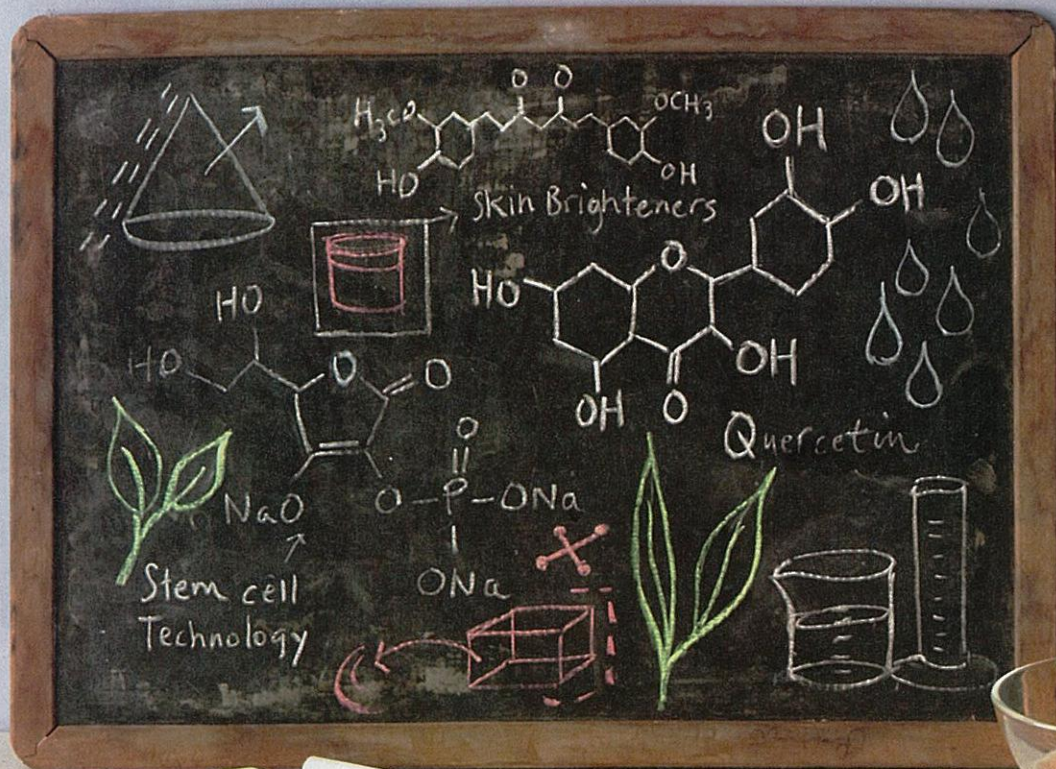 O O
H₃CO OCH₃
HO OH
Skin Brighteners
OH
OH
HO O
OH
OH O
Quercetin
HO
HO O O
NaO
O
O-P-ONa
ONa
Stem cell
Technology